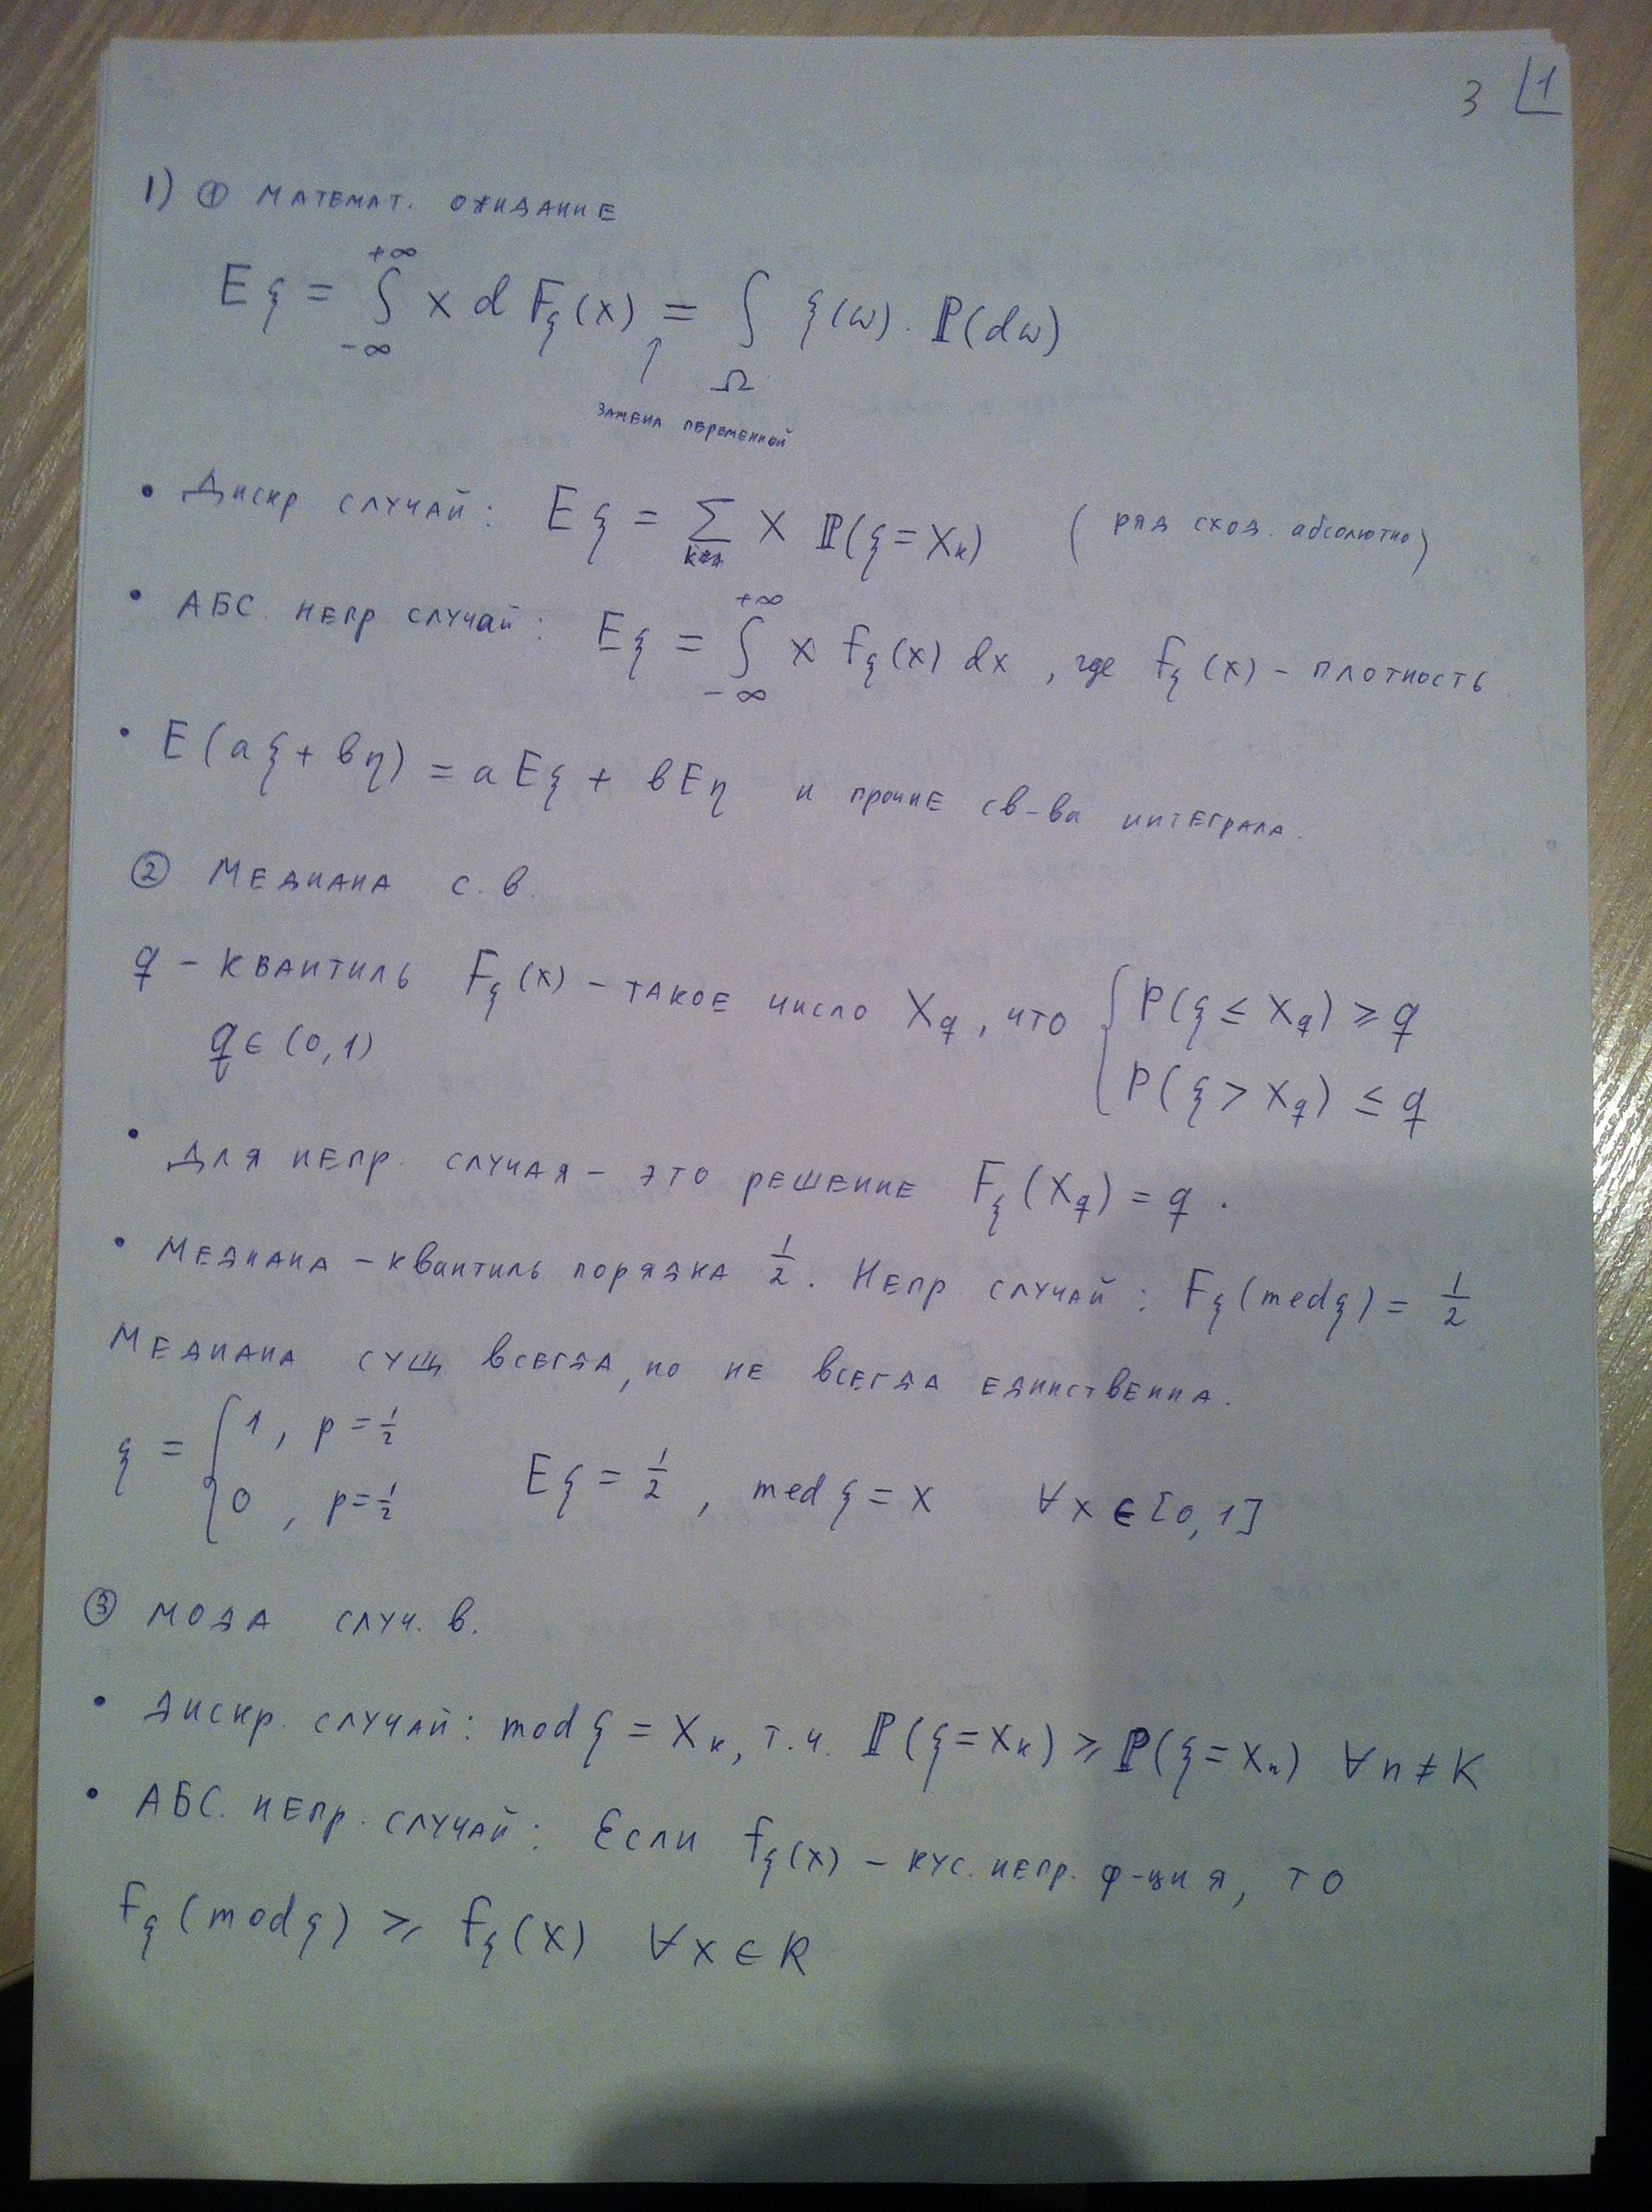 3 1
1) ① МАТЕМАТ. ОЖИДАНИЕ
Eξ = ∫_{-∞}^{+∞} x d F_ξ(x) = ∫_Ω ξ(ω) · ℙ(dω)
↑
ЗАМЕНА ПЕРЕМЕННОЙ
• Дискр. СЛУЧАЙ: Eξ = Σ_k x ℙ(ξ = x_k) (ряд сход. абсолютно)
• АБС. НЕПР СЛУЧАЙ: Eξ = ∫_{-∞}^{+∞} x f_ξ(x) dx, где f_ξ(x) – ПЛОТНОСТЬ
• E(aξ + bη) = aEξ + bEη и прочие св-ва интеграла.
② МЕДИАНА С. В.
q – КВАНТИЛЬ F_ξ(x) – ТАКОЕ ЧИСЛО X_q, ЧТО { P(ξ ≤ X_q) ≥ q
q ∈ (0, 1) P(ξ > X_q) ≤ q
• ДЛЯ НЕПР. СЛУЧАЯ – ЭТО РЕШЕНИЕ F_ξ(X_q) = q.
• МЕДИАНА – квантиль порядка 1/2. НЕПР СЛУЧАЙ: F_ξ(med ξ) = 1/2
МЕДИАНА СУЩ ВСЕГДА, НО НЕ ВСЕГДА ЕДИНСТВЕННА.
ξ = { 1, p = 1/2
0, p = 1/2 Eξ = 1/2, med ξ = x ∀x ∈ [0, 1]
③ МОДА СЛУЧ. В.
• ДИСКР. СЛУЧАЙ: mod ξ = x_k, т.ч. ℙ(ξ = x_k) ≥ ℙ(ξ = x_n) ∀n ≠ k
• АБС. НЕПР. СЛУЧАЙ: Если f_ξ(x) – кус. непр. ф-ция, ТО
f_ξ(mod ξ) ≥ f_ξ(x) ∀x ∈ R